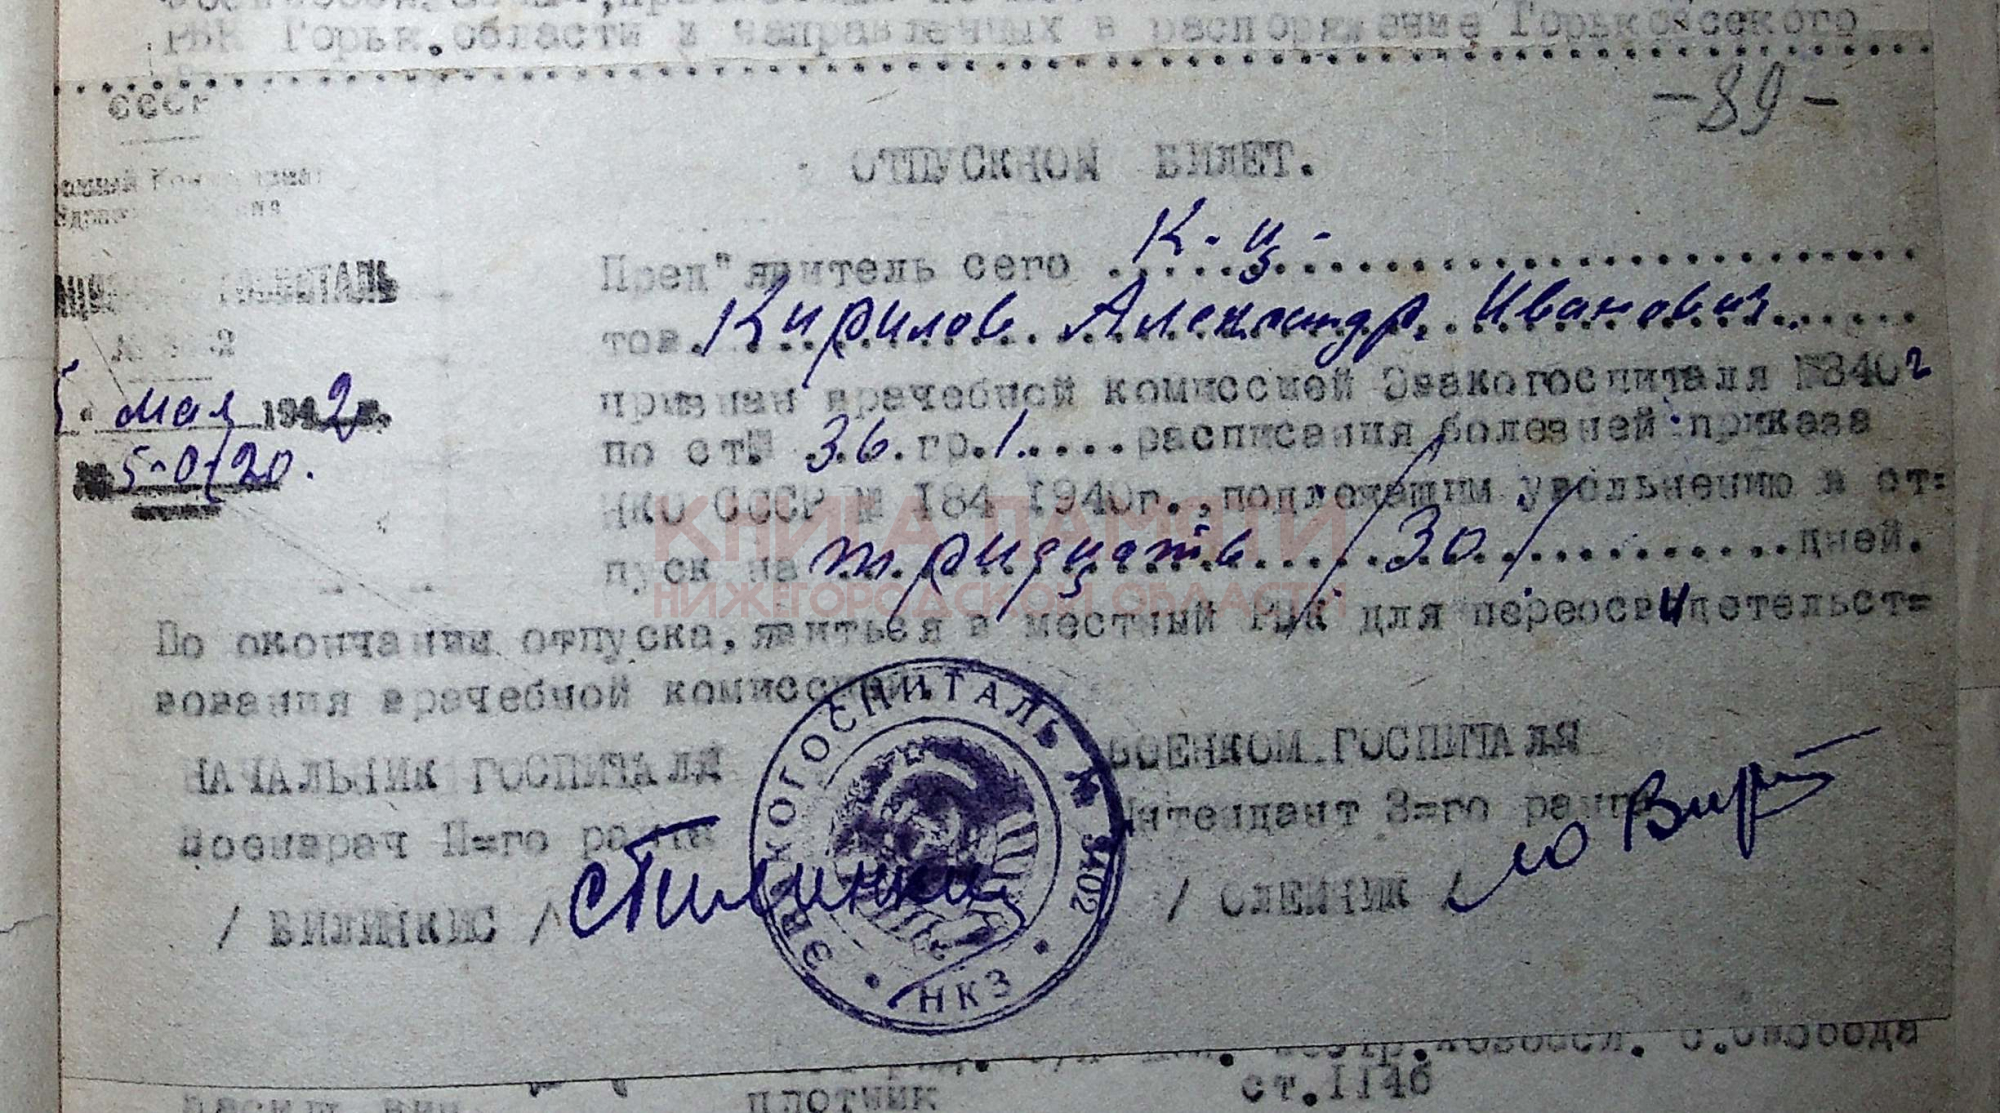 РВК Горьк.области и направленных в распоряжение Горьковского
-89-
СССР
ОТПУСКНОЙ БИЛЕТ.
ГОСПИТАЛЬ
мая 1942г.
№ 5-0/20.
Пред"явитель сего К-ц-
тов. Кирилов Александр Иванович
признан врачебной комиссией Эвакогоспиталя №3402
по ст.№ 36.гр.1.....расписания болезней приказа
НКО СССР № 184 1940г.,подлежащим увольнению в от=
пуск на тридцать /30/ дней.
КНИГА ПАМЯТИ
НИЖЕГОРОДСКОЙ ОБЛАСТИ
По окончании отпуска,явиться в местный РВК для переосвидетельст=
вования врачебной комиссией.
НАЧАЛЬНИК ГОСПИТАЛЯ
ВОЕНКОМ.ГОСПИТАЛЯ
Военврач II=го ранга
Интендант 3=го ранга
/ БИЛИНКИС /
/ ОЛЕЙНИК /
ЭВАКОГОСПИТАЛЬ № 3402
НКЗ
с.Свобода
плотник
ст.114б